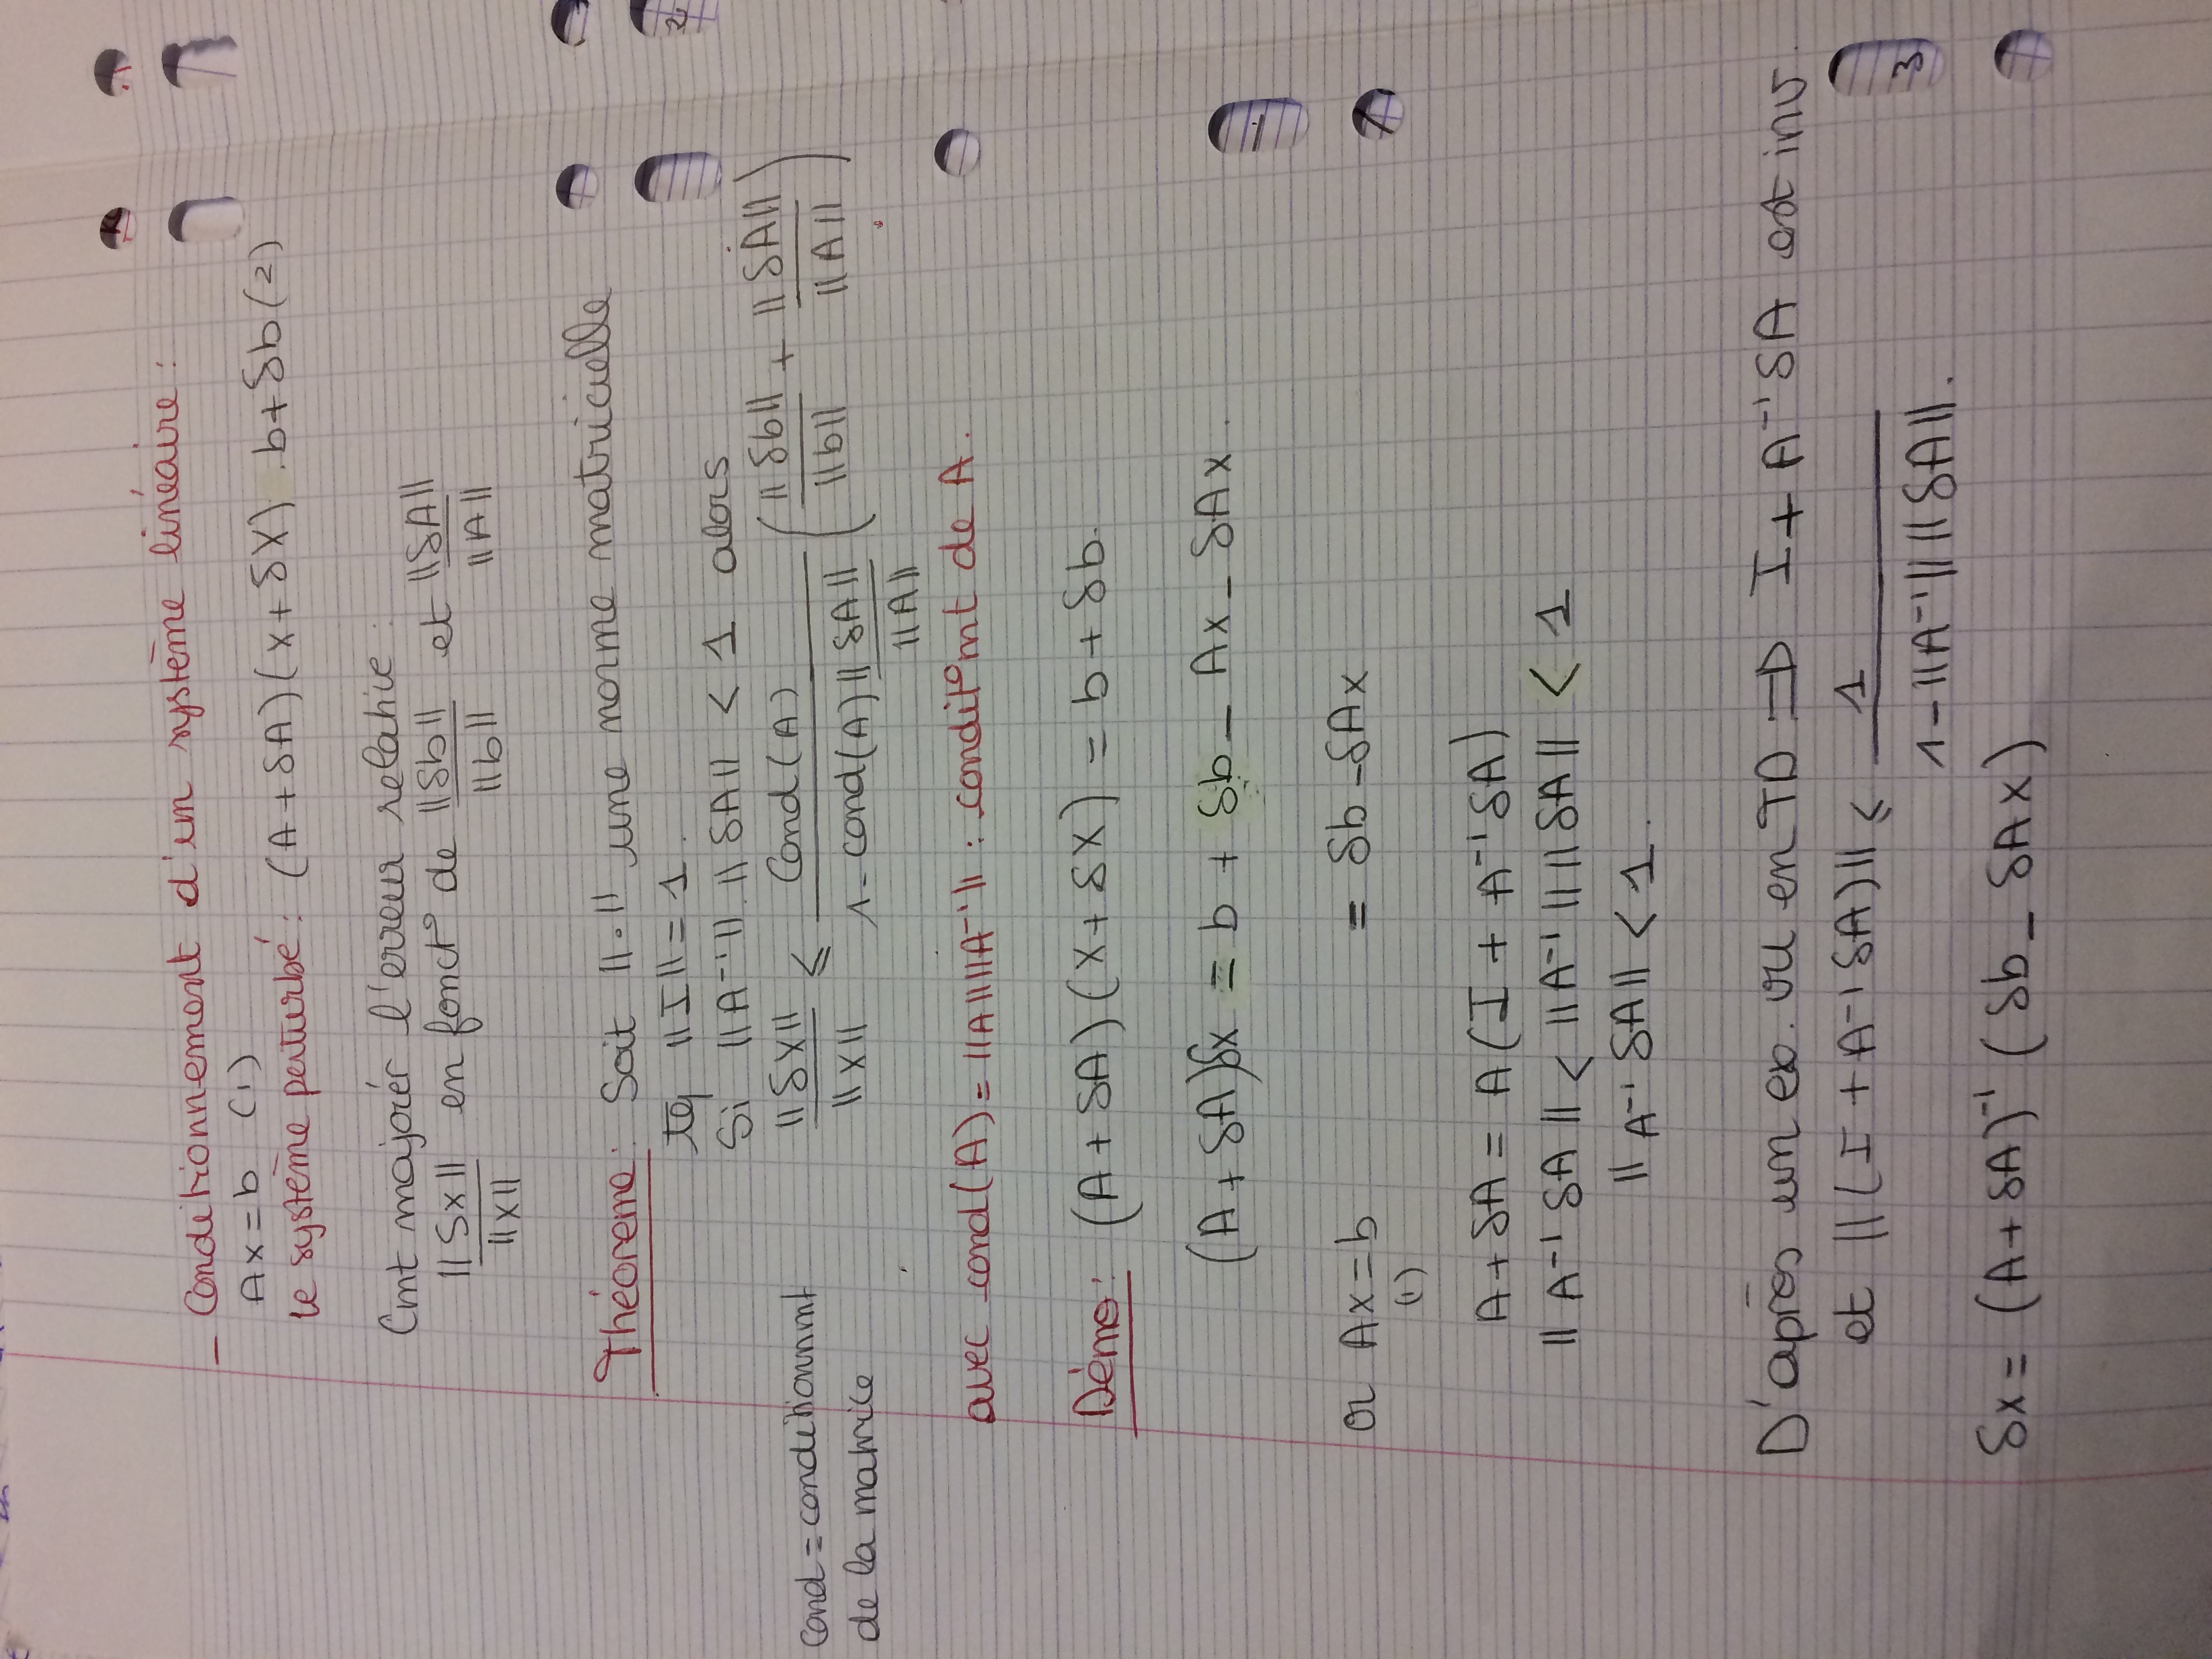 - Conditionnement d'un système linéaire :
Ax = b (1)
le système perturbé : (A + δA)(x + δX) . b + δb (2)
Cmt majorér l'erreur relative :
||δx|| / ||x|| en fonct° de ||δb|| / ||b|| et ||δA|| / ||A||
Théoreme : Soit ||.|| une norme matricielle
tq ||I|| = 1.
Si ||A⁻¹||.||δA|| < 1 alors
||δX|| / ||X|| ≤ Cond(A) / (1 - cond(A) ||δA|| / ||A||) (||δb|| / ||b|| + ||δA|| / ||A||)
cond = conditionnmt
de la matrice
avec cond(A) = ||A|| ||A⁻¹|| : condit°mt de A.
Démo : (A + δA)(X + δX) = b + δb.
(A + δA)δx = b + δb - Ax - δAx.
or Ax = b = δb - δAx
(1)
A + δA = A(I + A⁻¹δA)
||A⁻¹ δA|| < ||A⁻¹|| ||δA|| < 1
||A⁻¹ δA|| < 1.
D'après un ex. vu en TD => I + A⁻¹δA est inv.
et ||(I + A⁻¹δA)|| ≤ 1 / (1 - ||A⁻¹|| ||δA||).
δx = (A + δA)⁻¹ (δb - δAx)